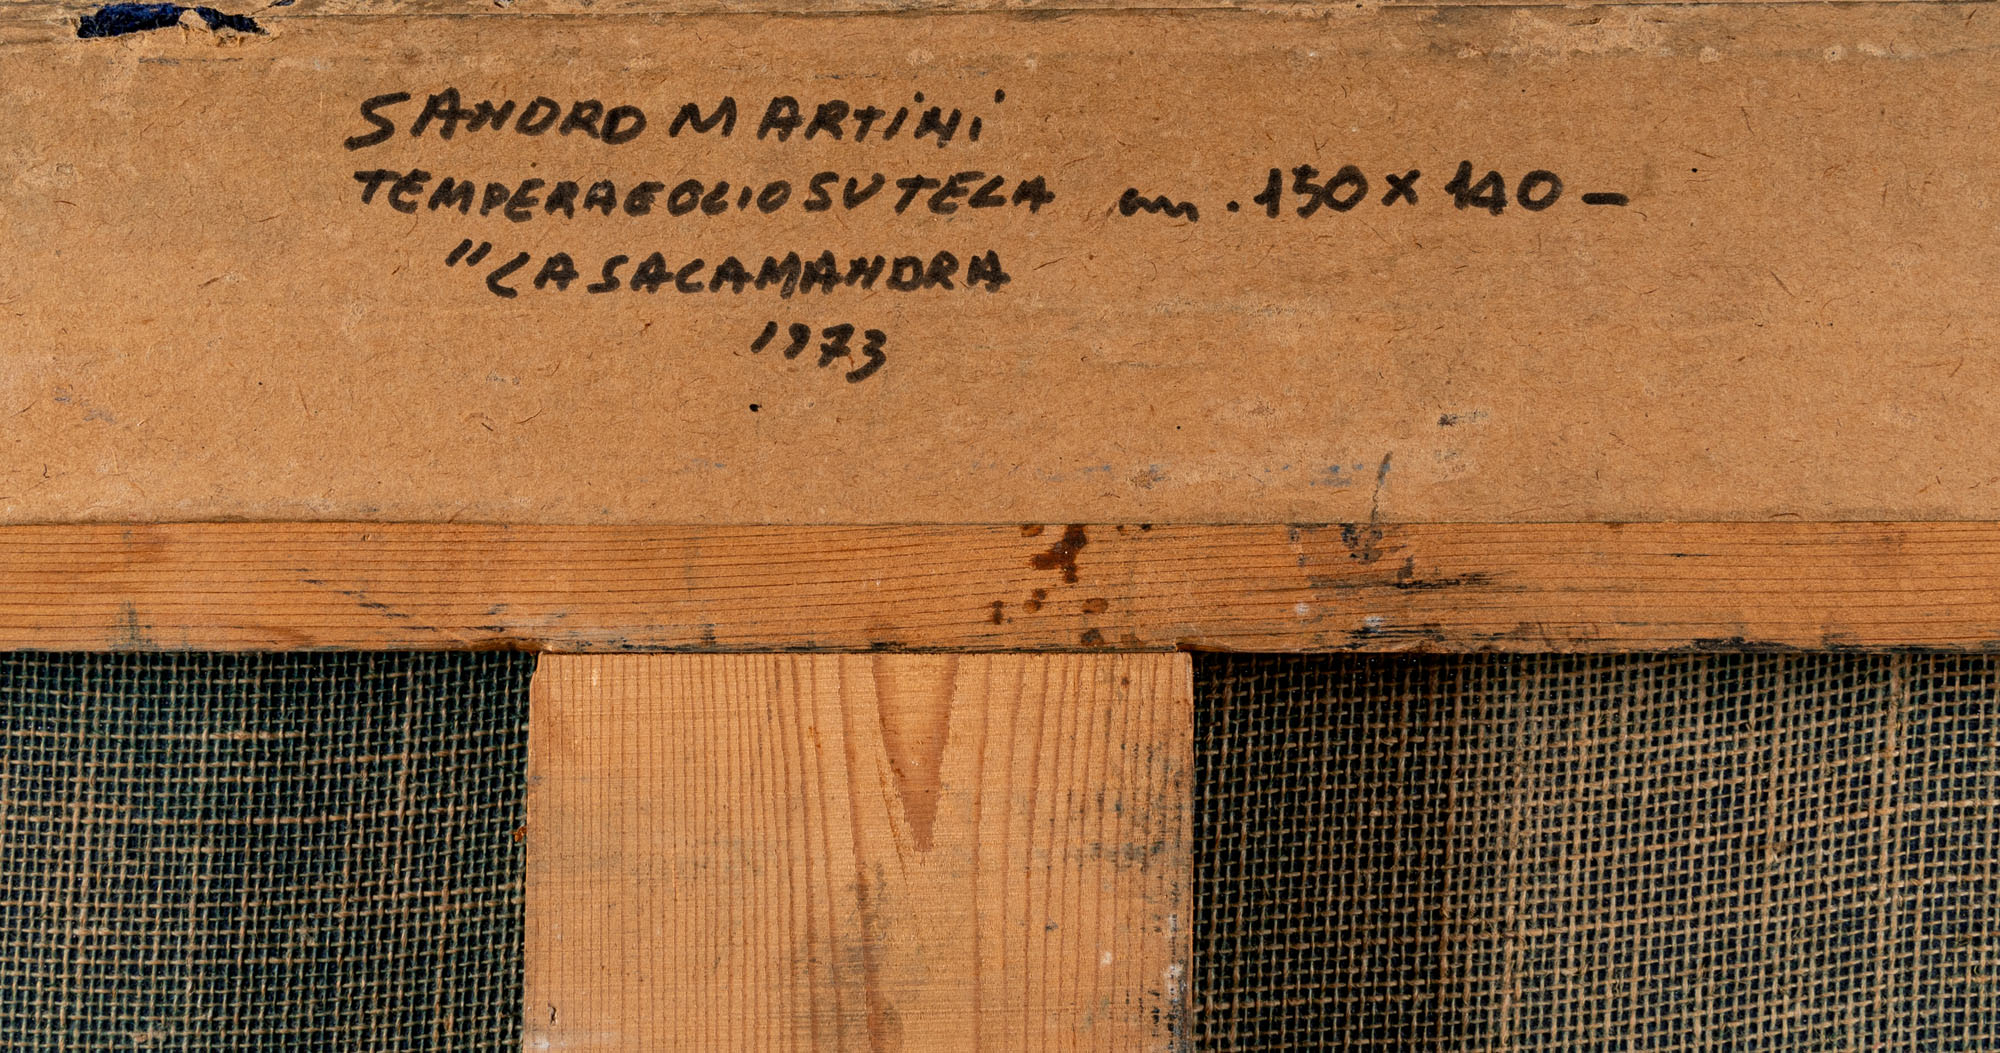 SANDRO MARTiNi
TEMPERA E OLIO SU TELA cm. 150 x 140 -
"LA SALAMANDRA
1973